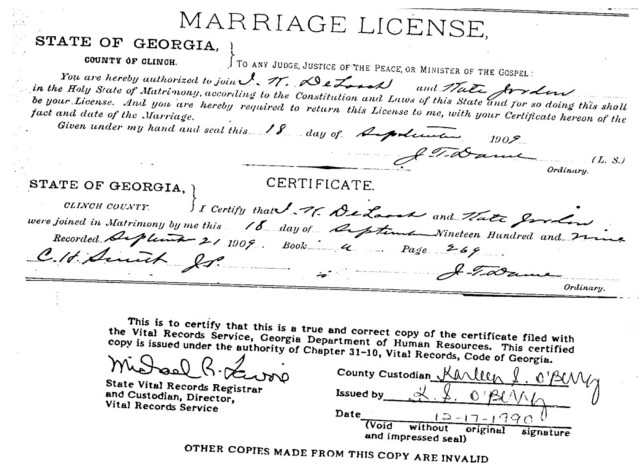 MARRIAGE LICENSE,
STATE OF GEORGIA,
COUNTY OF CLINCH.
TO ANY JUDGE, JUSTICE OF THE PEACE, OR MINISTER OF THE GOSPEL:
You are hereby authorized to join J. W. DeLoach and Kate Jordon
in the Holy State of Matrimony, according to the Constitution and Laws of this State and for so doing this shall
be your License. And you are hereby required to return this License to me, with your Certificate hereon of the
fact and date of the Marriage.
Given under my hand and seal this 18 day of September 1909
J. T. Dame (L. S.)
Ordinary.
CERTIFICATE.
STATE OF GEORGIA,
CLINCH COUNTY.
I Certify that J. W. DeLoach and Kate Jordon
were joined in Matrimony by me this 18 day of September Nineteen Hundred and nine
Recorded September 21 1909 Book a Page 269
C. H. Smith J.P. J. T. Dame
Ordinary.
This is to certify that this is a true and correct copy of the certificate filed with
the Vital Records Service, Georgia Department of Human Resources. This certified
copy is issued under the authority of Chapter 31-10, Vital Records, Code of Georgia.
Michael R. Lavoie
State Vital Records Registrar
and Custodian, Director,
Vital Records Service
County Custodian Karleen S. O'Berry
Issued by K. S. O'Berry
Date 12-17-1990
(Void without original signature
and impressed seal)
OTHER COPIES MADE FROM THIS COPY ARE INVALID